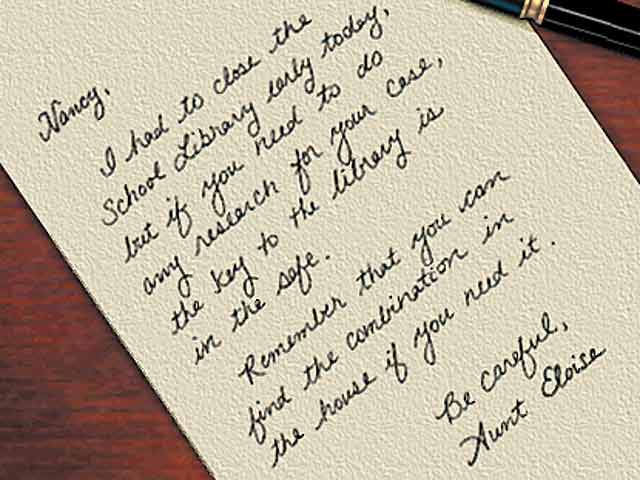 Nancy,
I had to close the
School Library early today,
but if you need to do
any research for your case,
the key to the library is
in the safe.
Remember that you can
find the combination in
the house if you need it.
Be careful,
Aunt Eloise